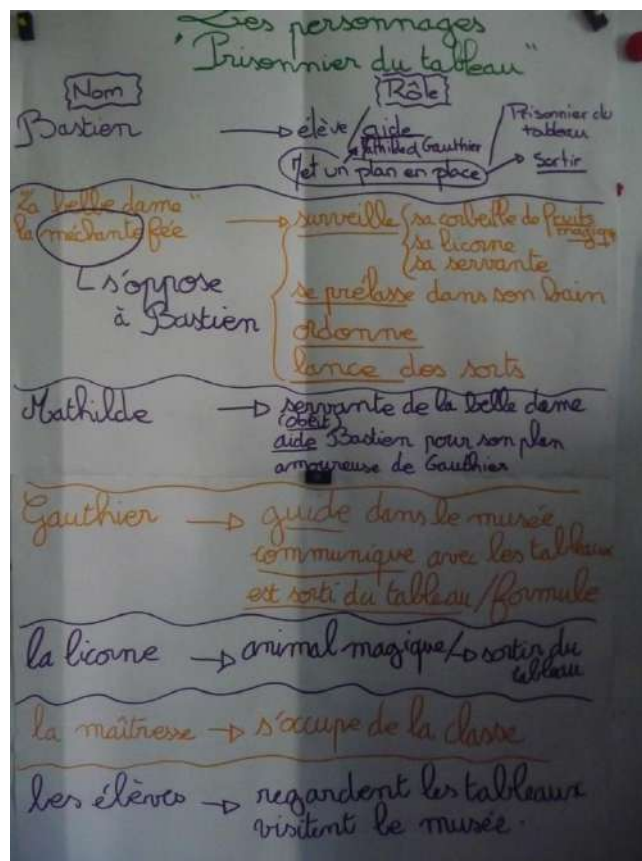 Les personnages
"Prisonnier du tableau"
Nom
Rôle
Bastien
élève / aide
Mathilde & Gauthier
Met un plan en place
Prisonnier du
tableau
Sortir
"La belle dame"
la méchante fée
s'oppose
à Bastien
surveille
sa corbeille de fruits
magiques
sa licorne
sa servante
se prélasse dans son bain
ordonne
lance des sorts
Mathilde
servante de la belle dame
(obéit)
aide Bastien pour son plan
amoureuse de Gauthier
Gauthier
guide dans le musée
communique avec les tableaux
est sorti du tableau / formule
la licorne
animal magique / sortir du
tableau
la maîtresse
s'occupe de la classe
les élèves
regardent les tableaux
visitent le musée.